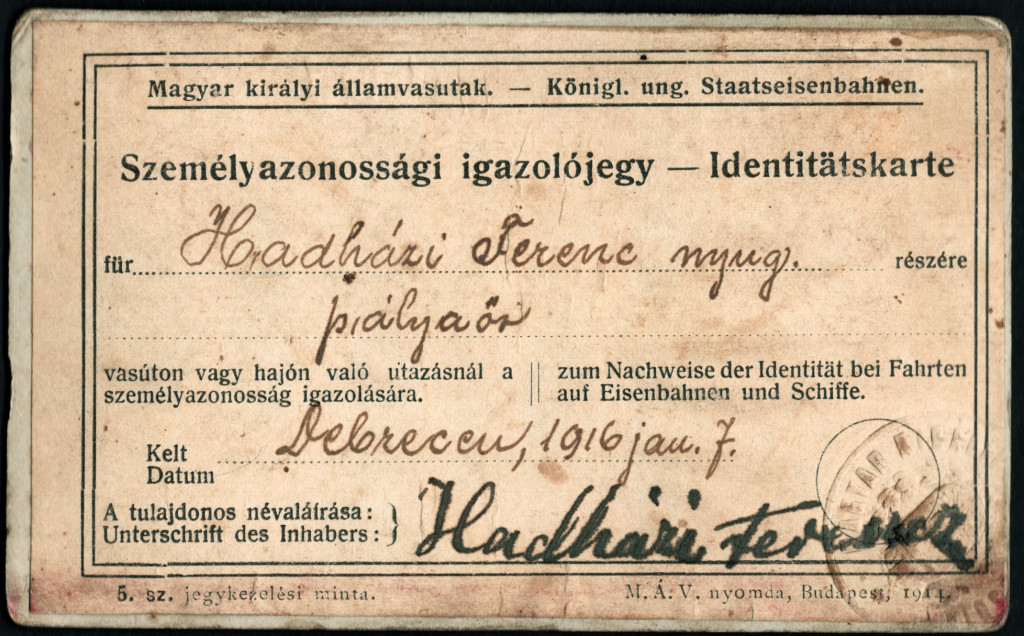 Magyar királyi államvasutak. — Königl. ung. Staatseisenbahnen.
Személyazonossági igazolójegy — Identitätskarte
für Hadházi Ferenc nyug. részére
pályaőr
vasúton vagy hajón való utazásnál a személyazonosság igazolására.
zum Nachweise der Identität bei Fahrten auf Eisenbahnen und Schiffe.
Kelt
Datum
Debrecen, 1916 jan. 7.
A tulajdonos névaláírása:
Unterschrift des Inhabers:
Hadházi Ferencz
5. sz. jegykezelési minta.
M. Á. V. nyomda, Budapest, 1914.